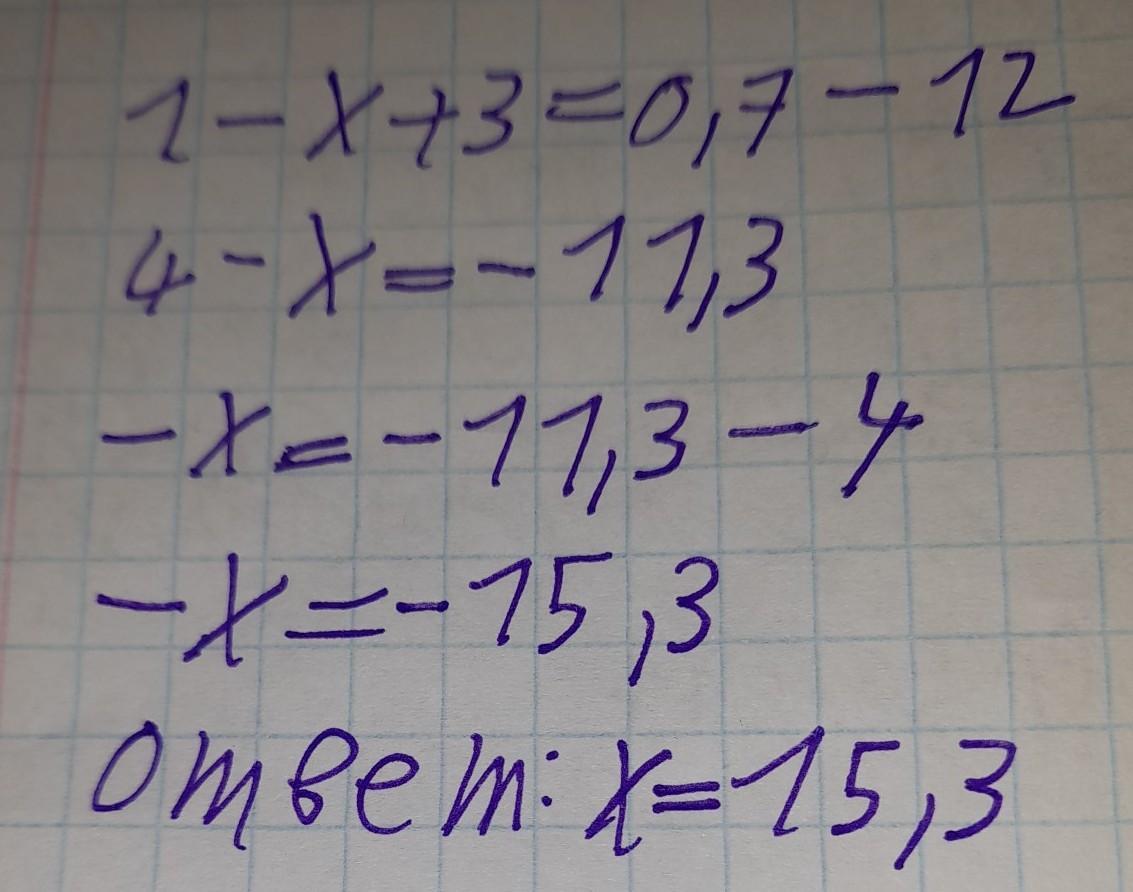 1 - x + 3 = 0,7 - 12
4 - x = - 11,3
- x = - 11,3 - 4
- x = - 15,3
Ответ: x = 15,3